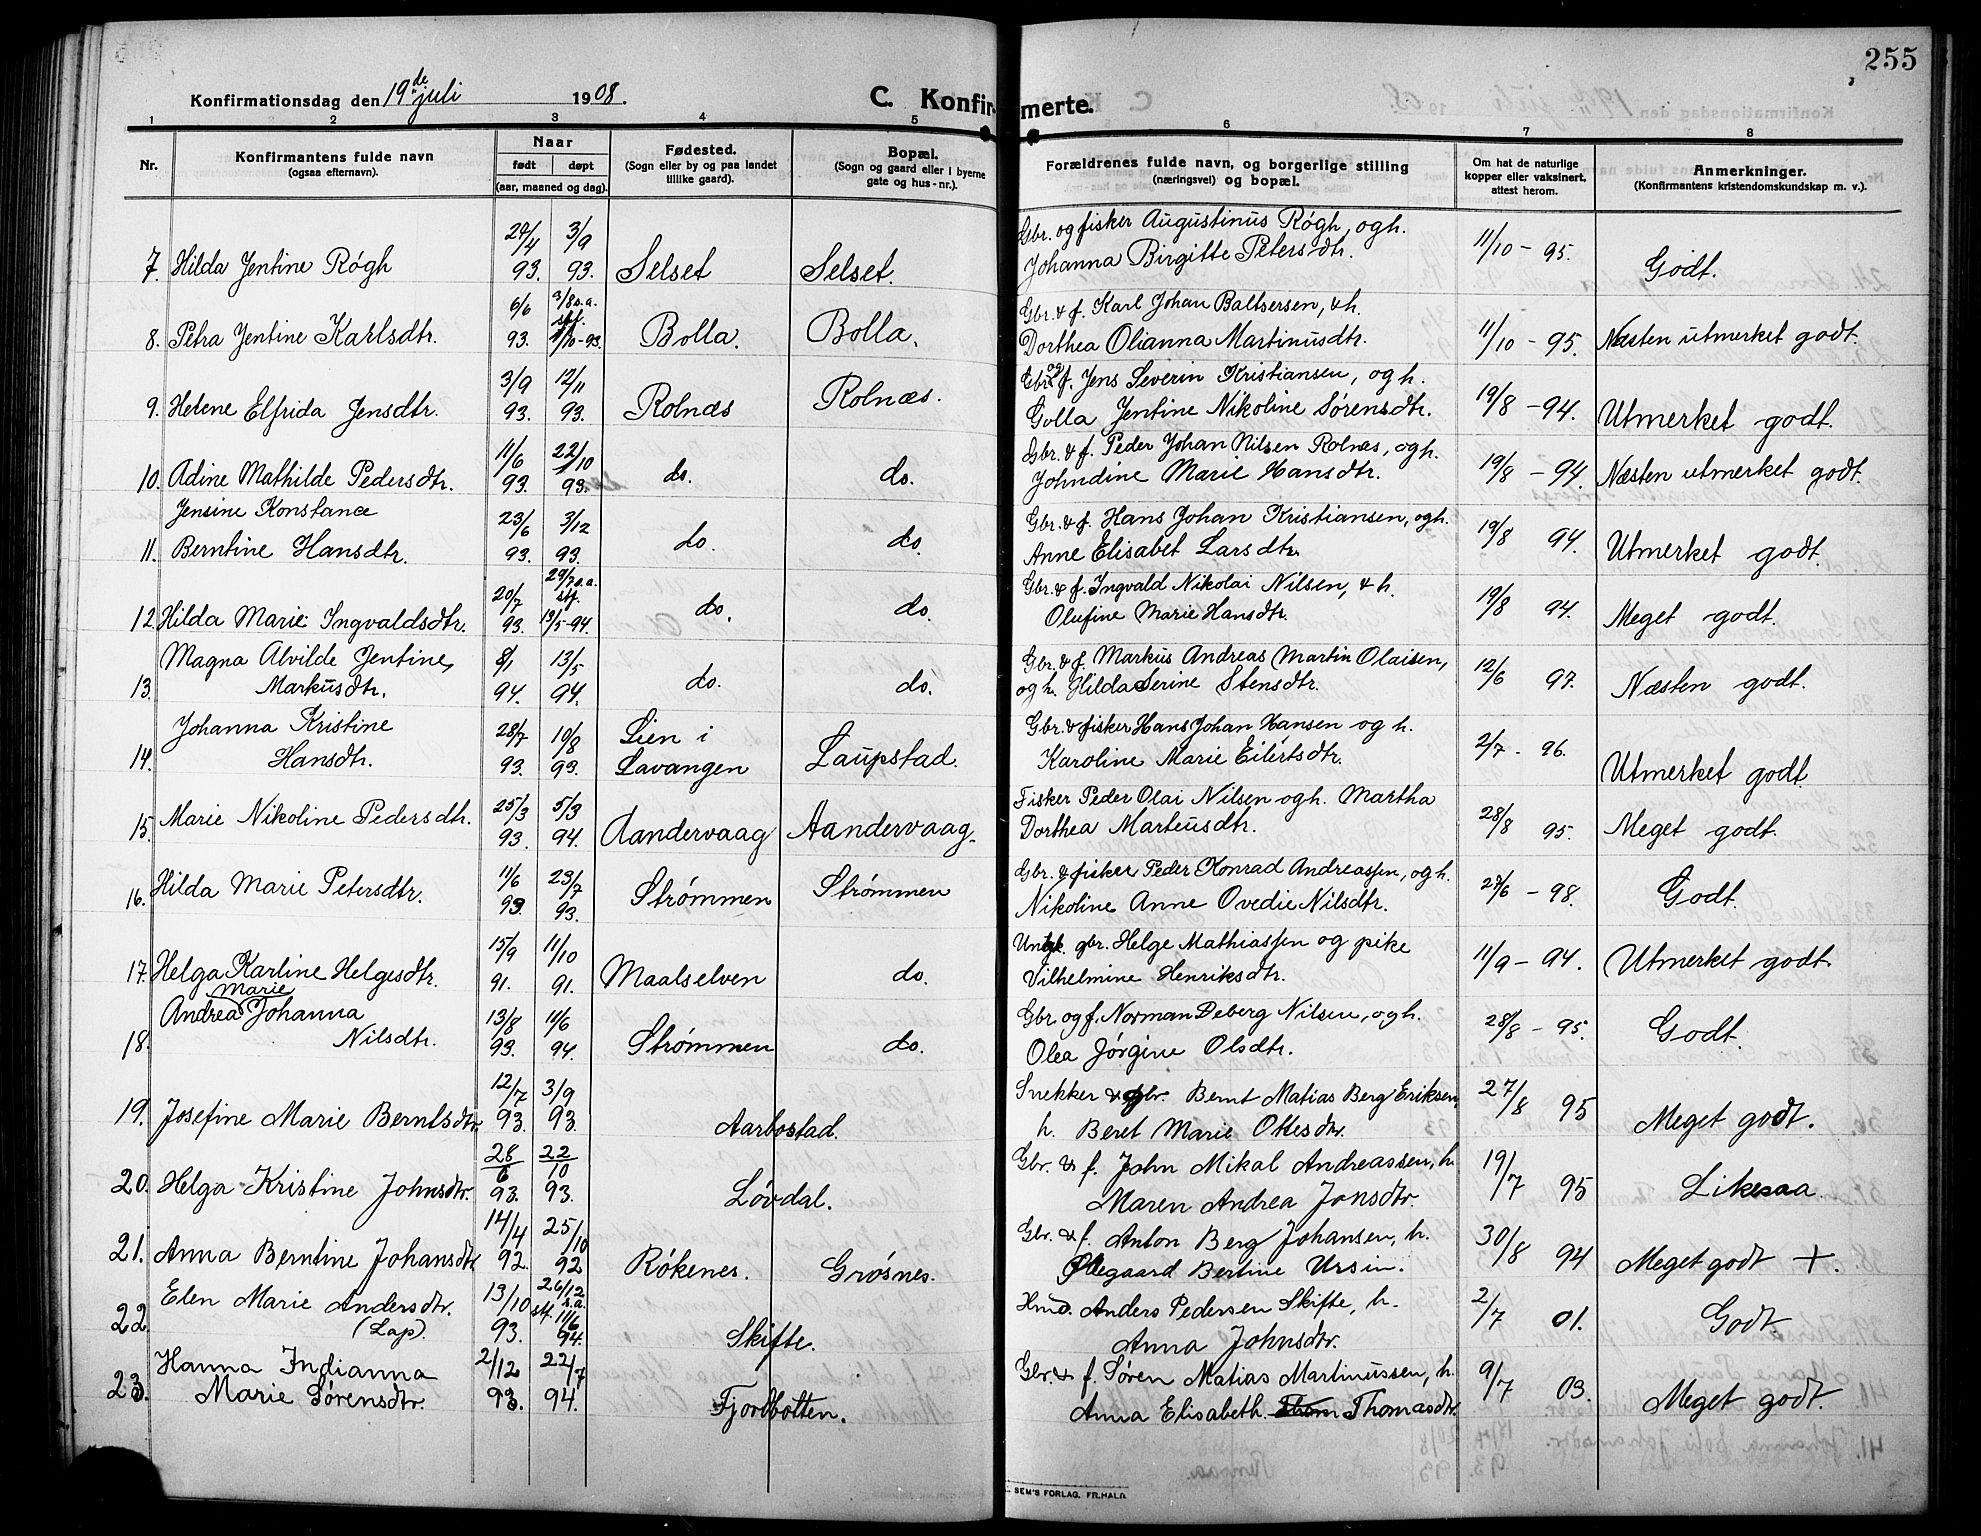 255
Konfirmationsdag den 19de juli 1908.
C. Konfirmerte.
1 2 3 4 5 6 7 8
Nr.
Konfirmantens fulde navn
(ogsaa efternavn).
Naar
født døpt
(aar, maaned og dag).
Fødested.
(Sogn eller by og paa landet
tillike gaard).
Bopæl.
(Sogn og gaard eller i byerne
gate og hus-nr.).
Forældrenes fulde navn, og borgerlige stilling
(næringsvei) og bopæl.
Om hat de naturlige
kopper eller vaksinert,
attest herom.
Anmerkninger.
(Konfirmantens kristendomskundskap m. v.).
29/4 3/9 Gbr. og fisker Augustinus Røgh, og h.
7 Hilda Jentine Røgh 93. 93. Selset Selset. Johanna Birgitte Petersdtr. 11/10 - 95. Godt.
6/6 3/8 s.a. stf. Gbr. & f. Karl Johan Baltsersen, & h.
8. Petra Jentine Karlsdtr. 93. 1/10-93. Bolla. Bolla. Dorthea Olianna Martinusdtr. 11/10 - 95. Næsten utmerket godt.
3/9 12/11 Gbr. og f. Jens Severin Kristiansen, og h.
9. Helene Elfrida Jensdtr. 93. 93. Rolnæs Rolnæs. Golla Jentine Nikoline Sørensdtr. 19/8 - 94. Utmerket godt.
11/6 22/10 Gbr. & f. Peder Johan Nilsen Rolnæs, og h.
10. Adine Mathilde Pedersdtr. 93. 93. do. do. Johndine Marie Hansdtr. 19/8 - 94. Næsten utmerket godt.
Jensine Konstance 23/6 3/12 Gbr. & f. Hans Johan Kristiansen, og h.
11. Berntine Hansdtr. 93. 93. do. do. Anne Elisabet Larsdtr. 19/8 94. Utmerket godt.
20/7 29/7 s.a. stf. Gbr. & f. Ingvald Nikolai Nilsen, & h.
12. Hilda Marie Ingvaldsdtr. 93. 13/5-94. do. do. Olufine Marie Hansdtr. 19/8 94. Meget godt.
Magna Alvilde Jentine 8/1 13/5 Gbr. & f. Markus Andreas Martin Olaisen,
13. Markusdtr. 94 94. do. do. og h. Hilda Serine Stensdtr. 12/6 97. Næsten godt.
Johanna Kristine 28/7 10/8 Lien i Gbr. & fisker Hans Johan Hansen og h.
14. Hansdtr. 93. 93. Lavangen Laupstad. Karoline Marie Eilertsdtr. 2/7 - 96. Utmerket godt
25/3 5/3 Fisker Peder Olai Nilsen og h. Martha
15. Marie Nikoline Pedersdtr. 93. 94. Aandervaag Aandervaag. Dorthea Marteusdtr. 28/8 95. Meget godt.
11/6 23/7 Gbr. & fisker Peder Konrad Andreassen, og h.
16. Hilda Marie Petersdtr. 93. 93. Strømmen Strømmen Nikoline Anne Ovedie Nilsdtr. 27/6 - 98. Godt.
15/9 11/10 Ungk. gbr. Helge Mathiassen og pike
17. Helga Karline Helgesdtr. 91. 91. Maalselven do. Vilhelmine Henriksdtr. 11/9 - 94. Utmerket godt.
Andrea Marie Johanna 13/8 11/6 Gbr og f. Norman Deberg Nilsen, og h.
18. Nilsdtr. 93. 94. Strømmen do. Olea Jørgine Olsdtr. 28/8 - 95. Godt.
12/7 3/9 Snekker & gbr. Bernt Matias Berg Eriksen,
19. Josefine Marie Berntsdtr 93. 93. Aarbostad. h. Beret Marie Ottesdtr. 27/8 95 Meget godt.
28/6 22/10 Gbr. & f. John Mikal Andreassen, h.
20. Helga Kristine Johnsdtr. 93. 93. Løvdal. Maren Andrea Jonsdtr. 19/7 95 Likesaa.
14/4 25/10 Gbr. & f. Anton Berg Johansen, h.
21. Anna Berntine Johansdtr 92. 92 Røkenes. Grøsnes. Ollegaard Bertine Ursin. 30/8 94 Meget godt +.
Elen Marie Andersdtr. 13/10 26/12 s.a. Hmd. Anders Pedersen Skifte, h.
22. (Lap). 93. stf. 11/6 94. Skifte. Anna Johnsdtr. 2/7 01. Godt
Hanna Indianna 2/12 22/7 Gbr. & f. Søren Matias Martinussen, h.
23. Marie Sørensdtr. 93. 94. Fjordbotten. Anna Elisabeth Thom Thomasdtr. 9/7 03. Meget godt.
SEM'S FORLAG, FR.HALD.